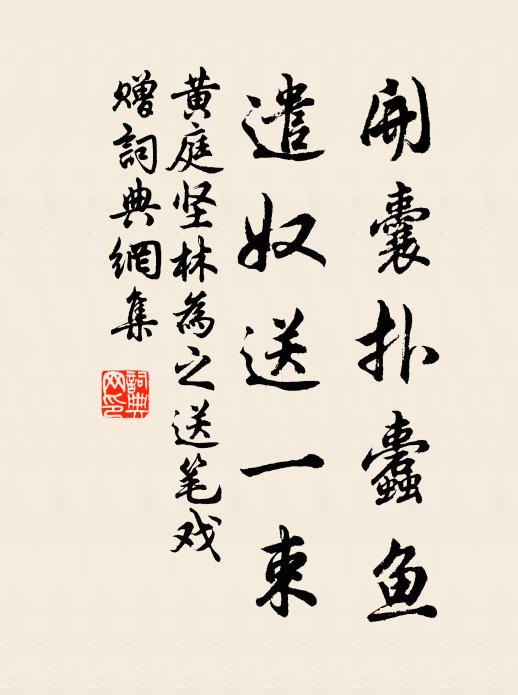 開囊扑蠹魚
遣奴送一束
黄庭坚林為之送笔戏
赠詞典網集
詞典网印